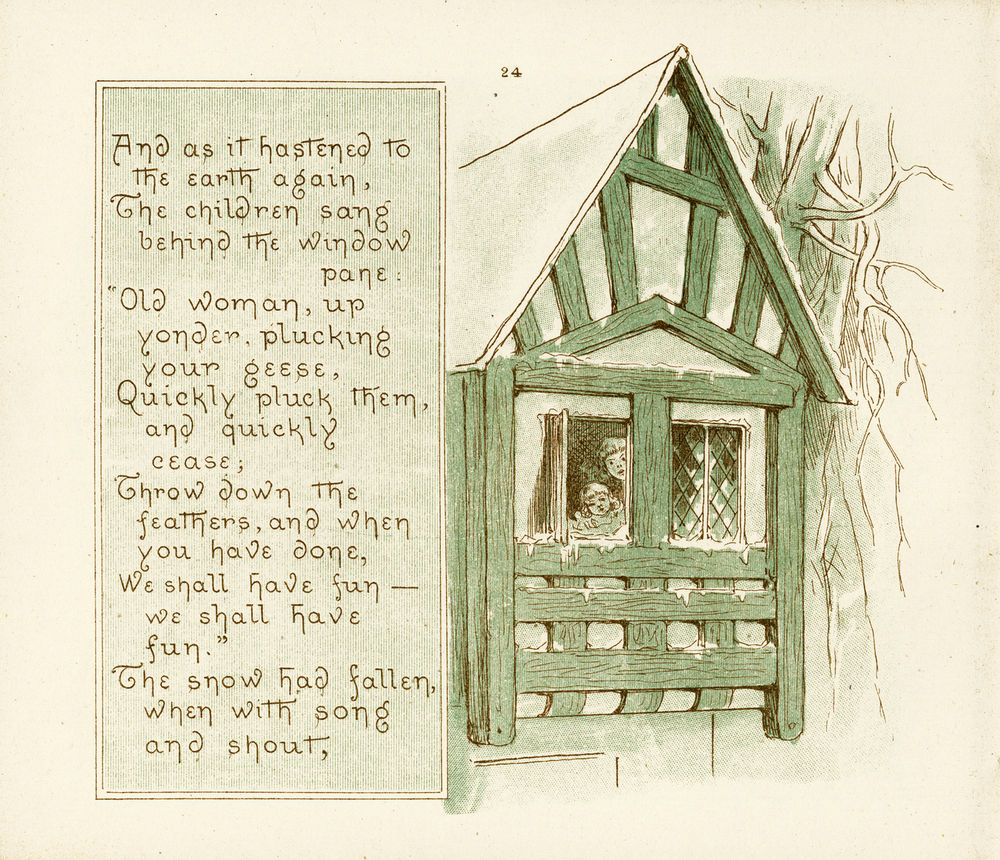 24
And as it hastened to
the earth again,
The children sang
behind the window
pane:
"Old woman, up
yonder, plucking
your geese,
Quickly pluck them,
and quickly
cease;
Throw down the
feathers, and when
you have done,
We shall have fun —
we shall have
fun."
The snow had fallen,
when with song
and shout,